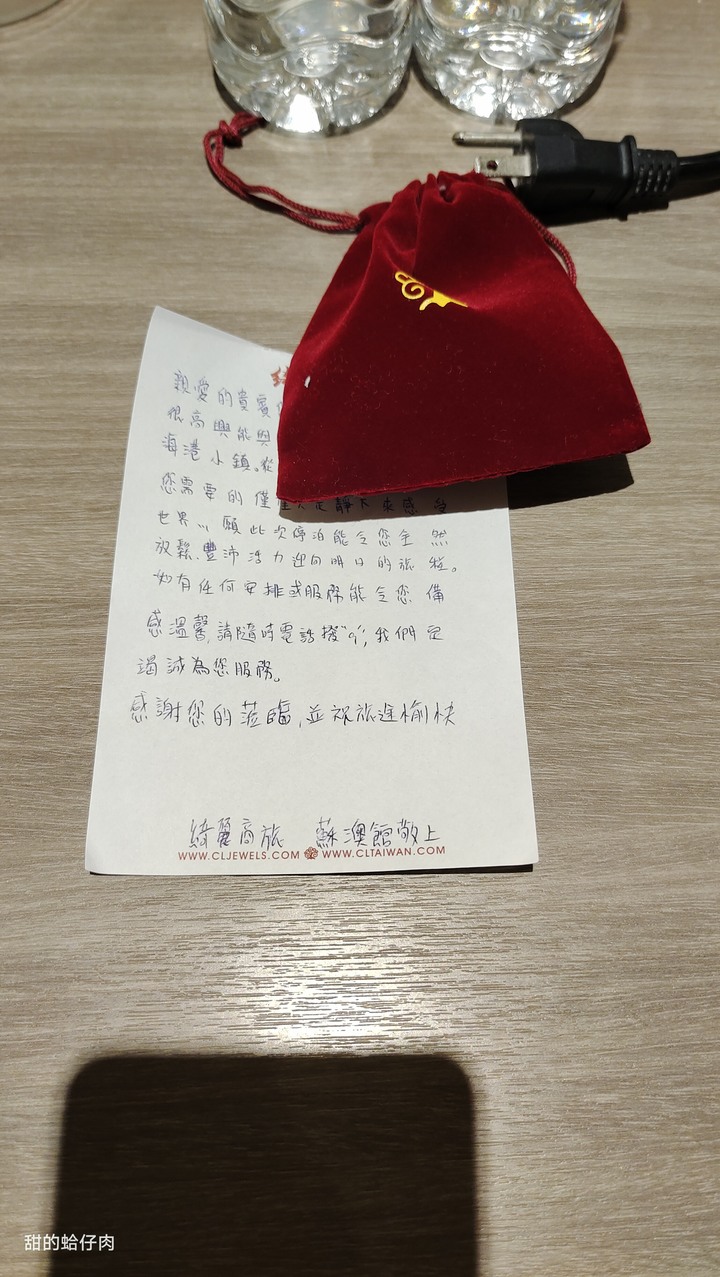 親愛的貴賓
很高興能與
海港小鎮。從
您需要的僅僅只是靜下來感受
世界… 願此次停泊能令您全然
放鬆.豐沛活力迎向明日的旅程。
如有任何安排或服務能令您備
感溫馨,請隨時電話撥"9",我們定
竭誠為您服務。
感謝您的蒞臨,並祝旅途愉快
綺麗商旅 蘇澳館敬上
WWW.CLJEWELS.COM WWW.CLTAIWAN.COM
甜的蛤仔肉